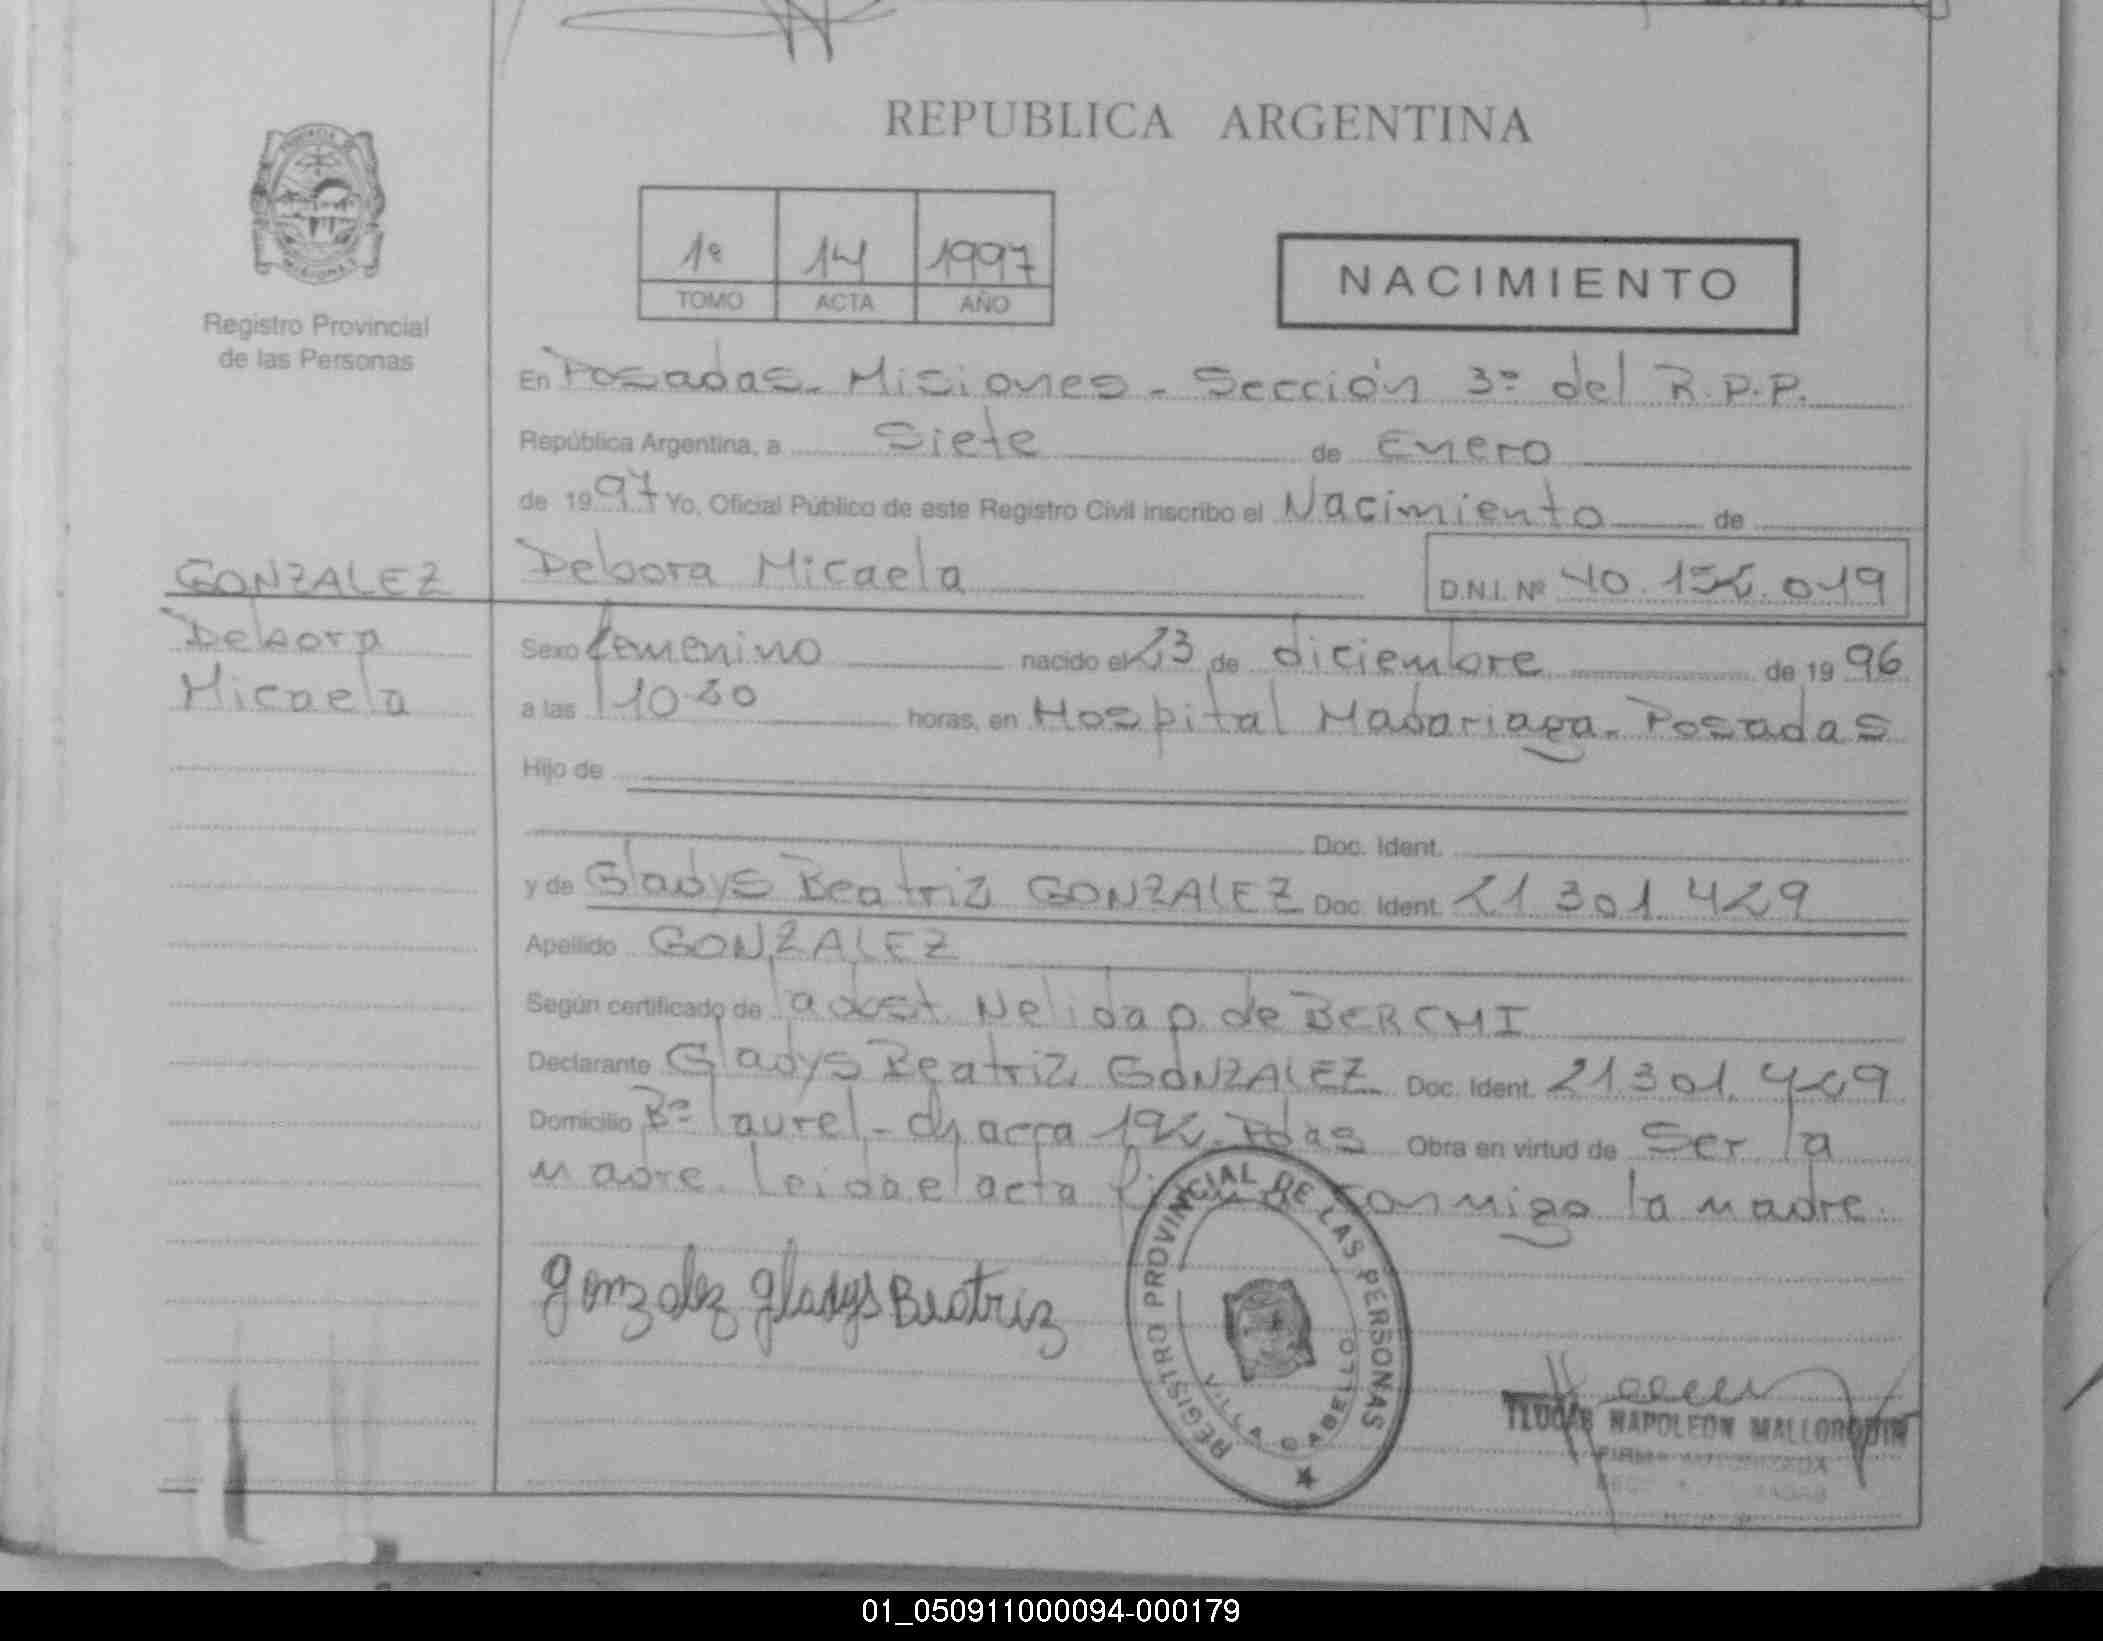 REPUBLICA ARGENTINA
1º 14 1997
TOMO ACTA AÑO
NACIMIENTO
Registro Provincial
de las Personas
En Posadas - Misiones - Sección 3º del R.P.P.
República Argentina, a Siete de Enero
de 1997 Yo, Oficial Público de este Registro Civil inscribo el Nacimiento de
GONZALEZ
Debora
Micaela
Debora Micaela D.N.I. Nº 40.152.019
Sexo femenino nacido el 23 de diciembre de 1996
a las 10.20 horas, en Hospital Madariaga - Posadas
Hijo de
Doc. Ident.
y de Gladys Beatriz GONZALEZ Doc. Ident. 21 301 429
Apellido GONZALEZ
Según certificado de la obst. Nelida p. de BERCHI
Declarante Gladys Beatriz GONZALEZ Doc. Ident. 21.301.429
Domicilio Bº laurel - chacra 192 - Pdas Obra en virtud de Ser la
madre. Leida el acta conmigo la madre.
Gonzalez Gladys Beatriz
REGISTRO PROVINCIAL DE LAS PERSONAS
VILLA CABELLO
NAPOLEON MALLORQUIN
FIRMA AUTORIZADA
01_050911000094-000179